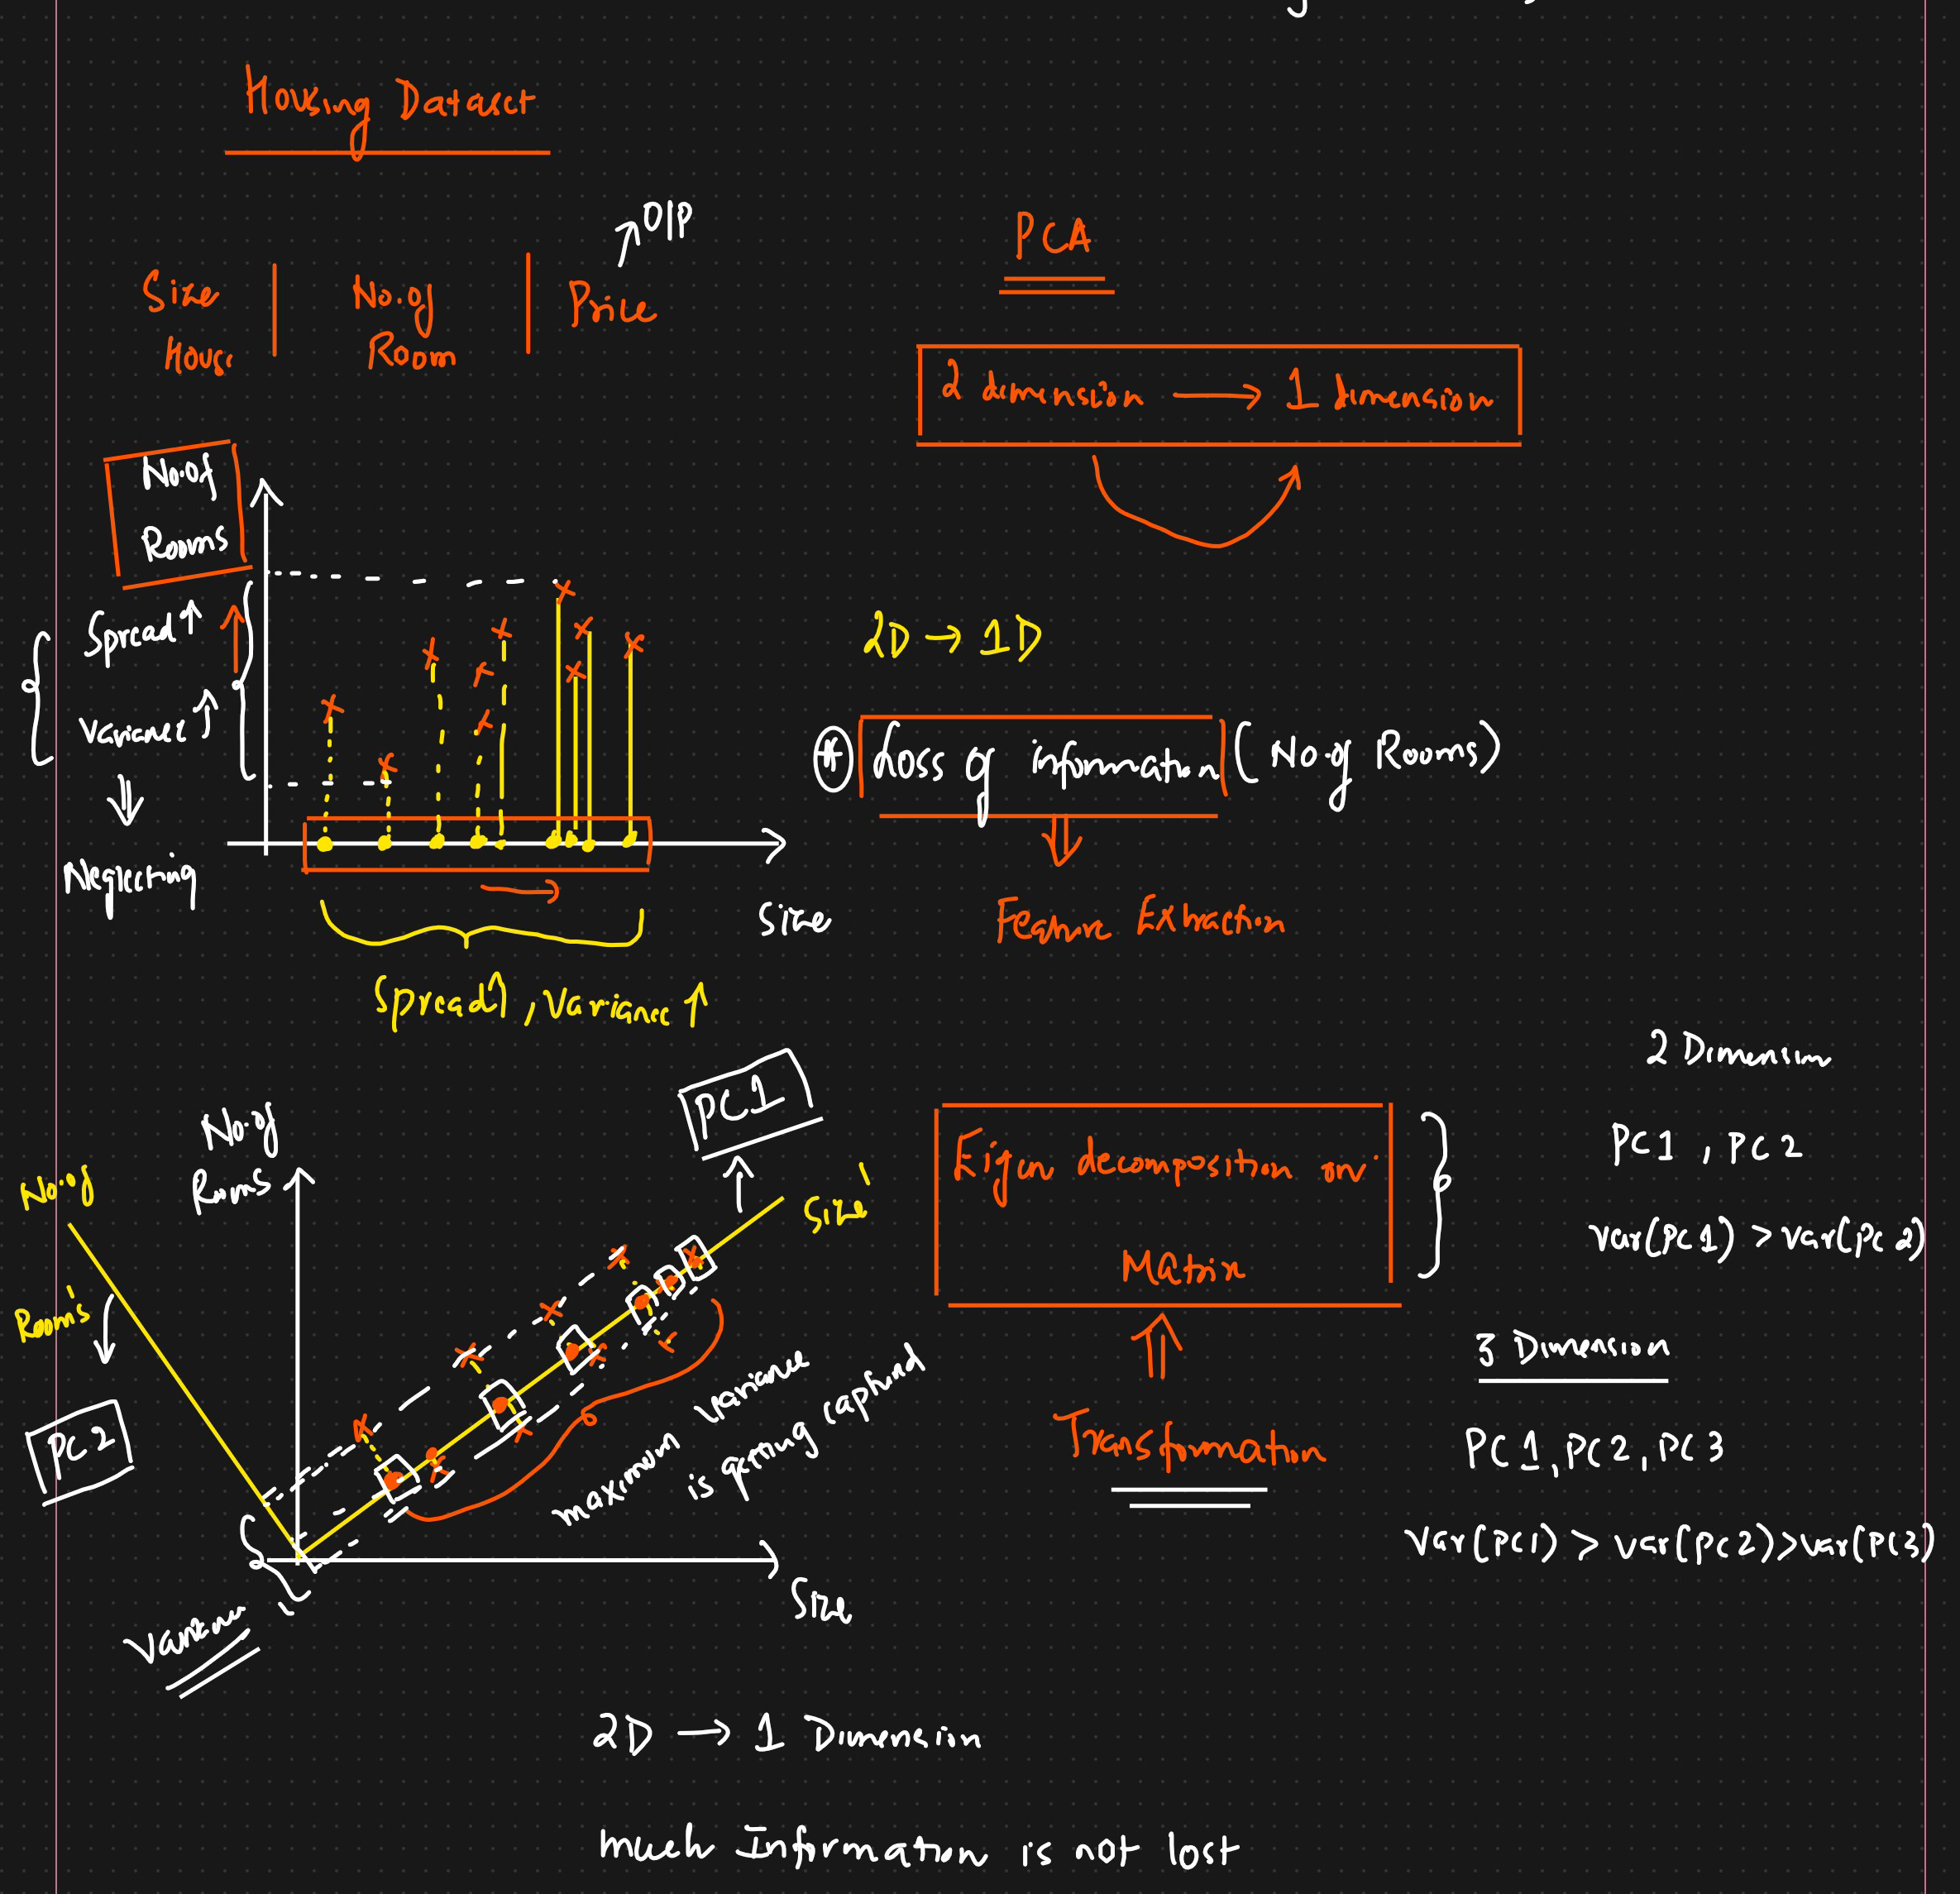 Housing Dataset
O/P
Size House
No.of Room
Price
PCA
2 dimension → 1 dimension
No.of
Rooms
Spread↑
Variance↑
Neglecting
Size
Spread↑, Variance↑
2D → 1D
* Loss of information (No.of Rooms)
Feature Extraction
No.of
Rooms
No.of
Rooms'
PC1
Size'
PC2
maximum variance
is getting captured
Variance
Size
Eigen decomposition on
Matrix
Transformation
2 Dimension
PC1, PC2
Var(PC1) > Var(PC2)
3 Dimension
PC1, PC2, PC3
Var(PC1) > Var(PC2) > Var(PC3)
2D → 1 Dimension
much Information is not lost